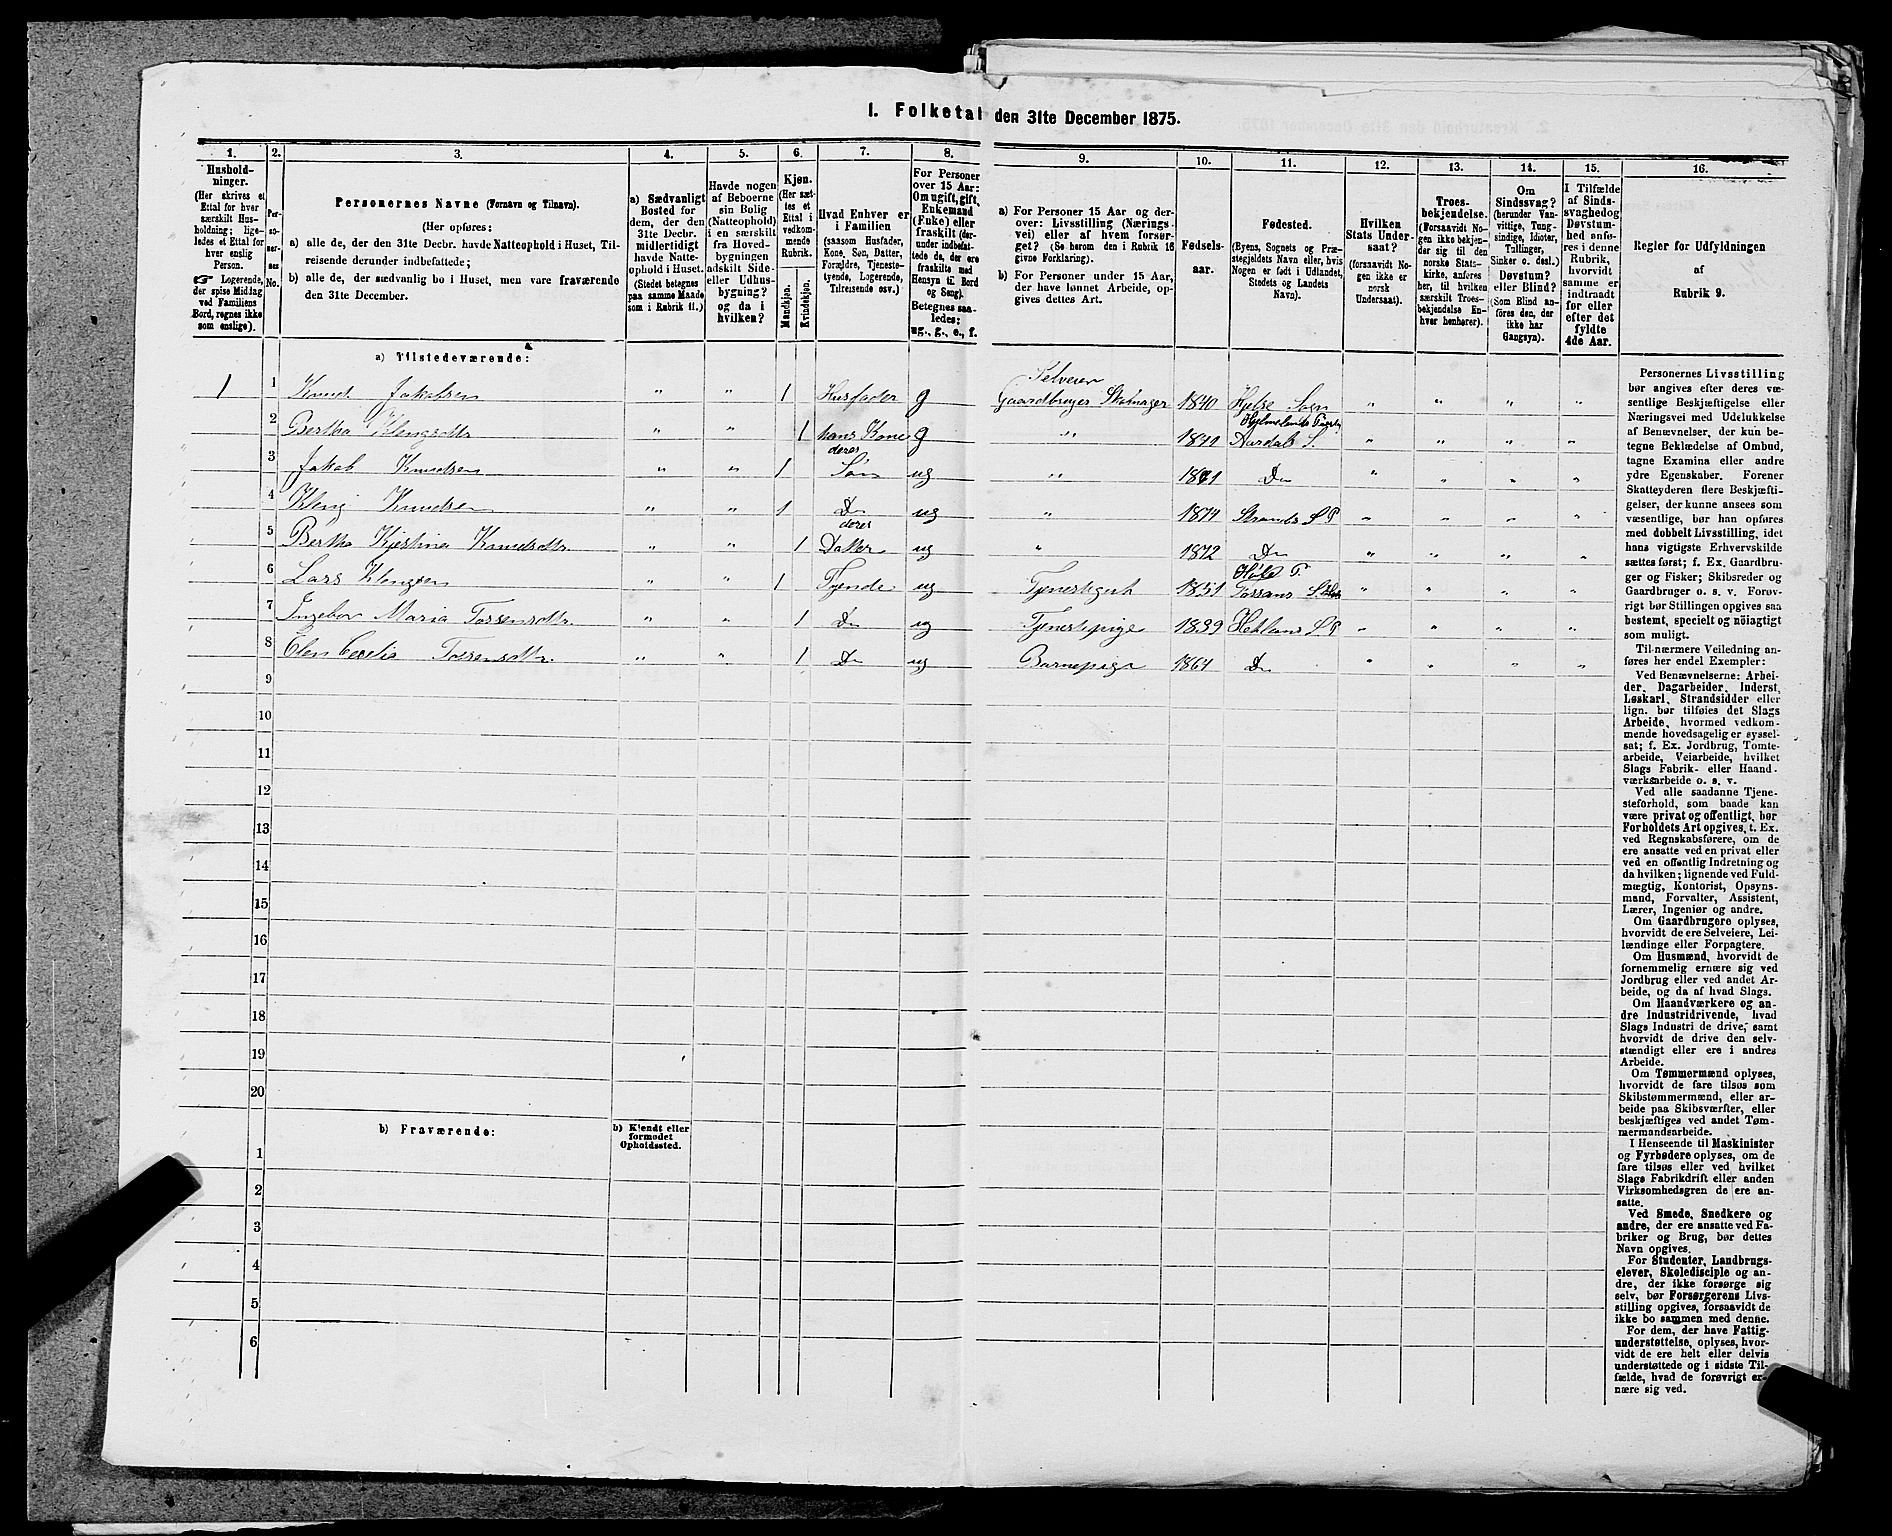 I. Folketal den 31te December 1875.
1.
Hushold-
ninger.
(Her skrives et
Ettal for hver
særskilt Hus-
holdning; lige-
ledes et Ettal for
hver enslig
Person.
☞ Logerende,
der spise Middag
ved Familiens
Bord, regnes ikke
som enslige).
2.
Per-
so-
ner-
nes
No.
3.
Personernes Navne (Fornavn og Tilnavn).
(Her opføres:
a) alle de, der den 31te Decbr. havde Natteophold i Huset, Til-
reisende derunder indbefattede;
b) alle de, der sædvanlig bo i Huset, men vare fraværende
den 31te December.
4.
a) Sædvanligt
Bosted for
dem, der den
31te Decbr.
midlertidigt
havde Natte-
ophold i Huset.
(Stedet betegnes
paa samme Maade
som i Rubrik 11.)
5.
Havde nogen
af Beboerne
sin Bolig
(Natteophold)
i en særskilt
fra Hoved-
bygningen
adskilt Side-
eller Udhus-
bygning?
og da i
hvilken?
6.
Kjøn.
(Her sæt-
tes et
Ettal i
vedkom-
mende
Rubrik.
Mandkjøn.
Kvindekjøn.
7.
Hvad Enhver er
i Familien
(saasom Husfader,
Kone, Søn, Datter,
Forældre, Tjeneste-
tyende, Logerende,
Tilreisende osv.)
8.
For Personer
over 15 Aar:
Om ugift, gift,
Enkemand
(Enke) eller
fraskilt (der-
under indbefat-
tede de, der ere
fraskilte med
Hensyn til Bord
og Seng).
Betegnes saa-
ledes:
ug., g., e., f.
9.
a) For Personer 15 Aar og der-
over: Livsstilling (Nærings-
vei) eller af hvem forsør-
get? (Se herom den i Rubrik 16
givne Forklaring).
b) For Personer under 15 Aar,
der have lønnet Arbeide, op-
gives dettes Art.
10.
Fødsels-
aar.
11.
Fødested.
(Byens, Sognets og Præ-
stegjeldets Navn eller, hvis
Nogen er født i Udlandet,
Stedets og Landets
Navn).
12.
Hvilken
Stats Under-
saat?
(forsaavidt No-
gen ikke er
norsk
Undersaat).
13.
Troes-
bekjendelse.
(Forsaavidt No-
gen ikke bekjen-
der sig til den
norske Stats-
kirke, anføres
her, til hvilken
særskilt Troes-
bekjendelse En-
hver henhører).
14.
Om
Sindssvag?
(herunder Van-
vittige, Tung-
sindige, Idioter,
Tullinger,
Sinker o. desl.)
Døvstum?
eller Blind?
(Som Blind an-
føres den, der
ikke har
Gangsyn).
15.
I Tilfælde
af Sinds-
svaghed og
Døvstum-
hed anfø-
res i denne
Rubrik,
hvorvidt
samme er
indtraadt
før eller
efter det
fyldte
4de Aar.
16.
Regler for Udfyldningen
af
Rubrik 9.
a) Tilstedeværende:
1 1 Knud Jakobsen " " 1 Husfader g Selveier Gaardbruger Skomager 1840 Hjelse Sogn " " " "
2 Bertha Klengsdtr " " 1 hans Kone g " 1841 Hjelmelands Præstg Aardals S. " " " "
3 Jakob Knudsen " " 1 deres Søn ug " 1871 Do " " " "
4 Kleng Knudsen " " 1 Do ug " 1874 Strands S P " " " "
5 Bertha Kjestina Knudsdtr " " 1 deres Datter ug " 1872 Do " " " "
6 Lars Klengsen " " 1 Tyende ug Tjenestegut 1851 Høle P. Fossans S. " " " "
7 Ingebor Maria Tossensdtr. " " 1 Do ug Tjenestepige 1839 Hetlans S P " " " "
8 Elen Cecelia Tossensdtr. " " 1 Do ug Barnepige 1864 Do " " " "
9
10
11
12
13
14
15
16
17
18
19
20
b) Fraværende:
b) Kjendt eller
formodet
Opholdssted.
1
2
3
4
5
6
Personernes Livsstilling
bør angives efter deres væ-
sentlige Beskjæftigelse eller
Næringsvei med Udelukkelse
af Benævnelser, der kun be-
tegne Beklædelse af Ombud,
tagne Examina eller andre
ydre Egenskaber. Forener
Skatteyderen flere Beskjæfti-
gelser, der kunne ansees som
væsentlige, bør han opføres
med dobbelt Livsstilling, idet
hans vigtigste Erhvervskilde
sættes først; f. Ex. Gaardbru-
ger og Fisker; Skibsreder og
Gaardbruger o. s. v. Forøv-
rigt bør Stillingen opgives saa
bestemt, specielt og nöiagtigt
som muligt.
Til nærmere Veiledning an-
føres her endel Exempler:
Ved Benævnelserne: Arbei-
der, Dagarbeider, Inderst,
Løskarl, Strandsidder eller
lign. bør tilføies det Slags
Arbeide, hvormed vedkom-
mende hovedsagelig er syssel-
sat; f. Ex. Jordbrug, Tomte-
arbeide, Veiarbeide, hvilket
Slags Fabrik- eller Haand-
værksarbeide o. s. v.
Ved alle saadanne Tjene-
steforhold, som baade kan
være privat og offentligt, bør
Forholdets Art opgives, t. Ex.
ved Regnskabsførere, om de
ere ansatte ved en privat eller
ved en offentlig Indretning og
da hvilken; lignende ved Fuld-
mægtig, Kontorist, Opsyns-
mand, Forvalter, Assistent,
Lærer, Ingeniør og andre.
Om Gaardbrugere oplyses,
hvorvidt de ere Selveiere, Lei-
lændinge eller Forpagtere.
Om Husmænd, hvorvidt de
fornemmelig ernære sig ved
Jordbrug eller ved andet Ar-
beide, og da af hvad Slags.
Om Haandværkere og an-
dre Industridrivende, hvad
Slags Industri de drive, samt
hvorvidt de drive den selv-
stændigt eller ere i andres
Arbeide.
Om Tømmermænd oplyses,
hvorvidt de fare tilsøs som
Skibstømmermænd, eller ar-
beide paa Skibsværfter, eller
beskjæftiges ved andet Tøm-
mermandsarbeide.
I Henseende til Maskinister
og Fyrbødere oplyses, om de
fare tilsøs eller ved hvilket
Slags Fabrikdrift eller anden
Virksomhedsgren de ere an-
satte.
Ved Smede, Snedkere og
andre, der ere ansatte ved Fa-
briker og Brug, bør dettes
Navn opgives.
For Studenter, Landbrugs-
elever, Skoledisciple og an-
dre, der ikke forsørge sig
selv, bør Forsørgerens Livs-
stilling opgives, forsaavidt de
ikke bo sammen med denne.
For dem, der have Fattig-
understøttelse, oplyses, hvor-
vidt de ere helt eller delvis
understøttede og i sidste Til-
fælde, hvad de forøvrigt er-
nære sig ved.